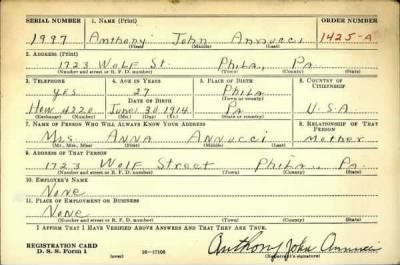 SERIAL NUMBER 1. NAME (Print) ORDER NUMBER
1997 Anthony John Annucci 1425-A
(First) (Middle) (Last)
2. ADDRESS (Print)
1723 Wolf St. Phila, Pa
(Number and street or R. F. D. number) (Town) (County) (State)
3. TELEPHONE 4. AGE IN YEARS 5. PLACE OF BIRTH 6. COUNTRY OF
CITIZENSHIP
yes 27 Phila
DATE OF BIRTH (Town or county)
How 4220 June 30 1914 Pa U.S.A.
(Exchange) (Number) (Mo.) (Day) (Yr.) (State or country)
7. NAME OF PERSON WHO WILL ALWAYS KNOW YOUR ADDRESS 8. RELATIONSHIP OF THAT
PERSON
Mrs. Anna Annucci Mother
(Mr., Mrs., Miss) (First) (Middle) (Last)
9. ADDRESS OF THAT PERSON
1723 Wolf Street Phila., Pa.
(Number and street or R. F. D. number) (Town) (County) (State)
10. EMPLOYER'S NAME
None
11. PLACE OF EMPLOYMENT OR BUSINESS
None
(Number and street or R. F. D. number) (Town) (County) (State)
I AFFIRM THAT I HAVE VERIFIED ABOVE ANSWERS AND THAT THEY ARE TRUE.
REGISTRATION CARD
D. S. S. Form 1 (over) 16-17105 Anthony John Annucci
(Registrant's signature)